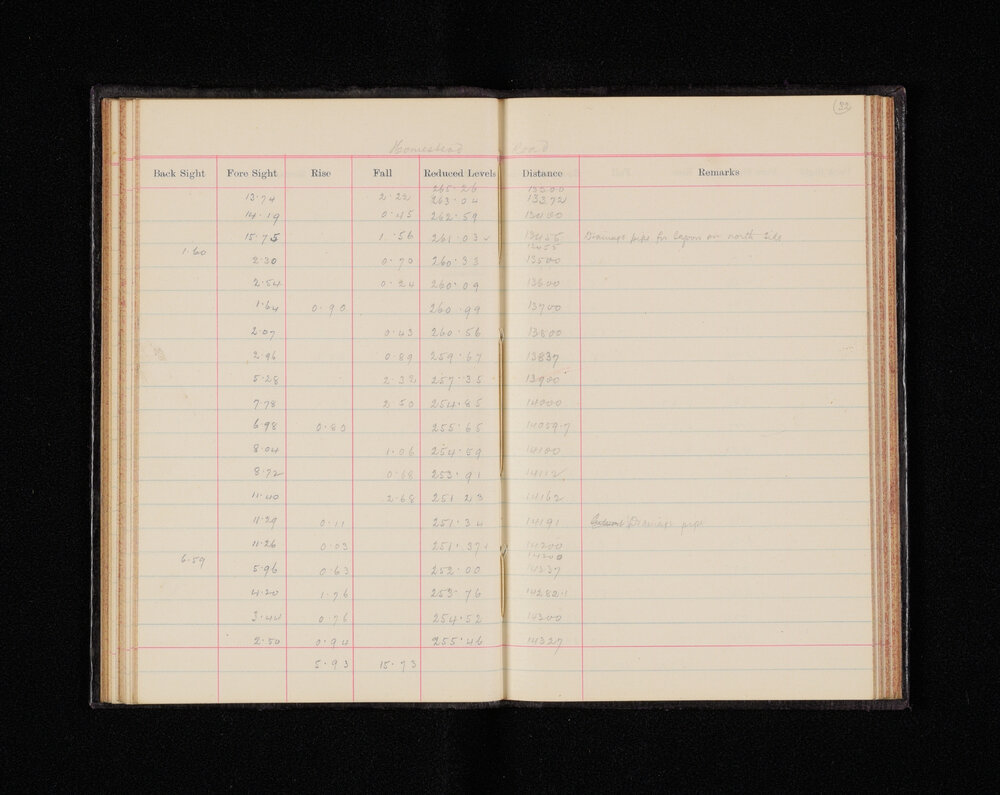 32
Homestead Road
Back Sight Fore Sight Rise Fall Reduced Levels Distance Remarks
265.26 13300
13.74 2.22 263.04 13372
14.19 0.45 262.59 13400
15.75 1.56 261.03 13455 Drainage pipe for lagoon on north side
1.60 13455
2.30 0.70 260.33 13500
2.54 0.24 260.09 13600
1.64 0.90 260.99 13700
2.07 0.43 260.56 13800
2.96 0.89 259.67 13837
5.28 2.32 257.35 13900
7.78 2.50 254.85 14000
6.98 0.80 255.65 14059.7
8.04 1.06 254.59 14100
8.72 0.68 253.91 14112
11.40 2.68 251.23 14162
11.29 0.11 251.34 14191 Drainage pipe
11.26 0.03 251.37 14200
6.59 14200
5.96 0.63 252.00 14237
4.20 1.76 253.76 14282.1
3.44 0.76 254.52 14300
2.50 0.94 255.46 14327
5.93 15.73